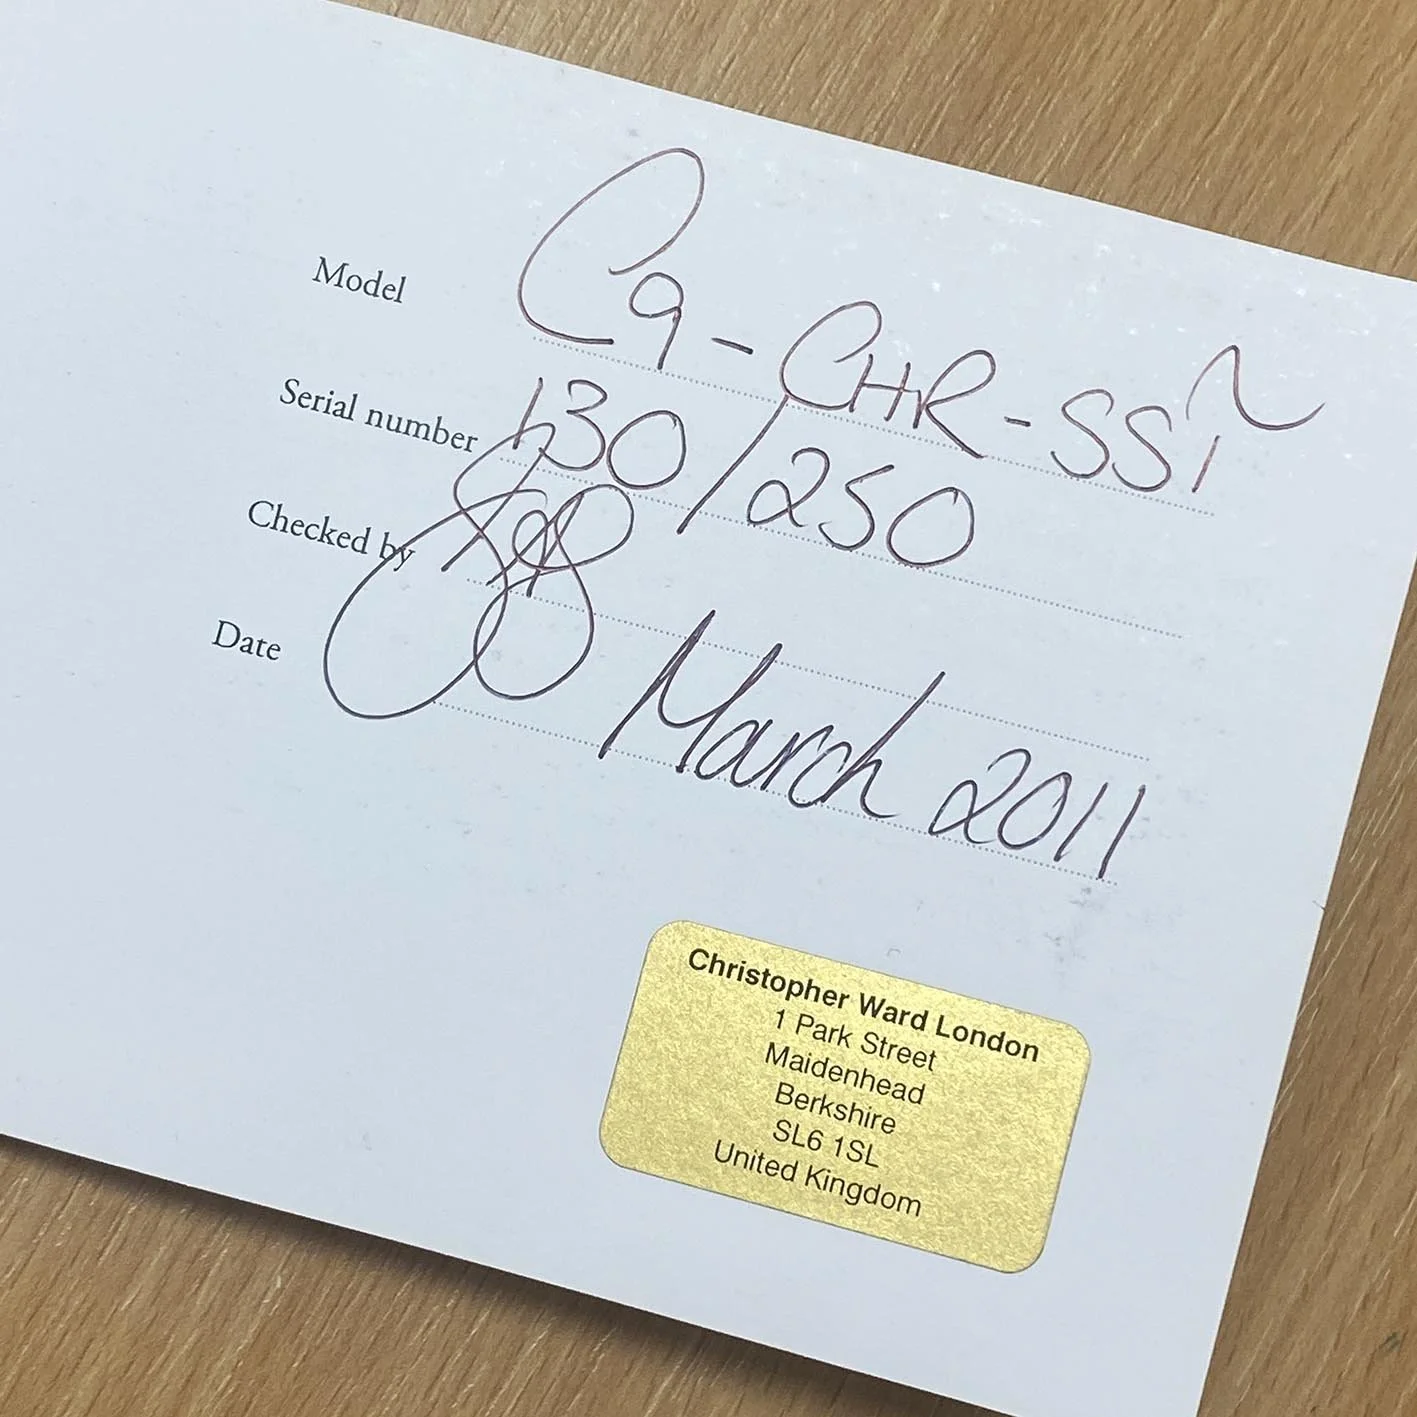 Model C9-CHR-SSI
Serial number 130/250
Checked by
Date March 2011
Christopher Ward London
1 Park Street
Maidenhead
Berkshire
SL6 1SL
United Kingdom